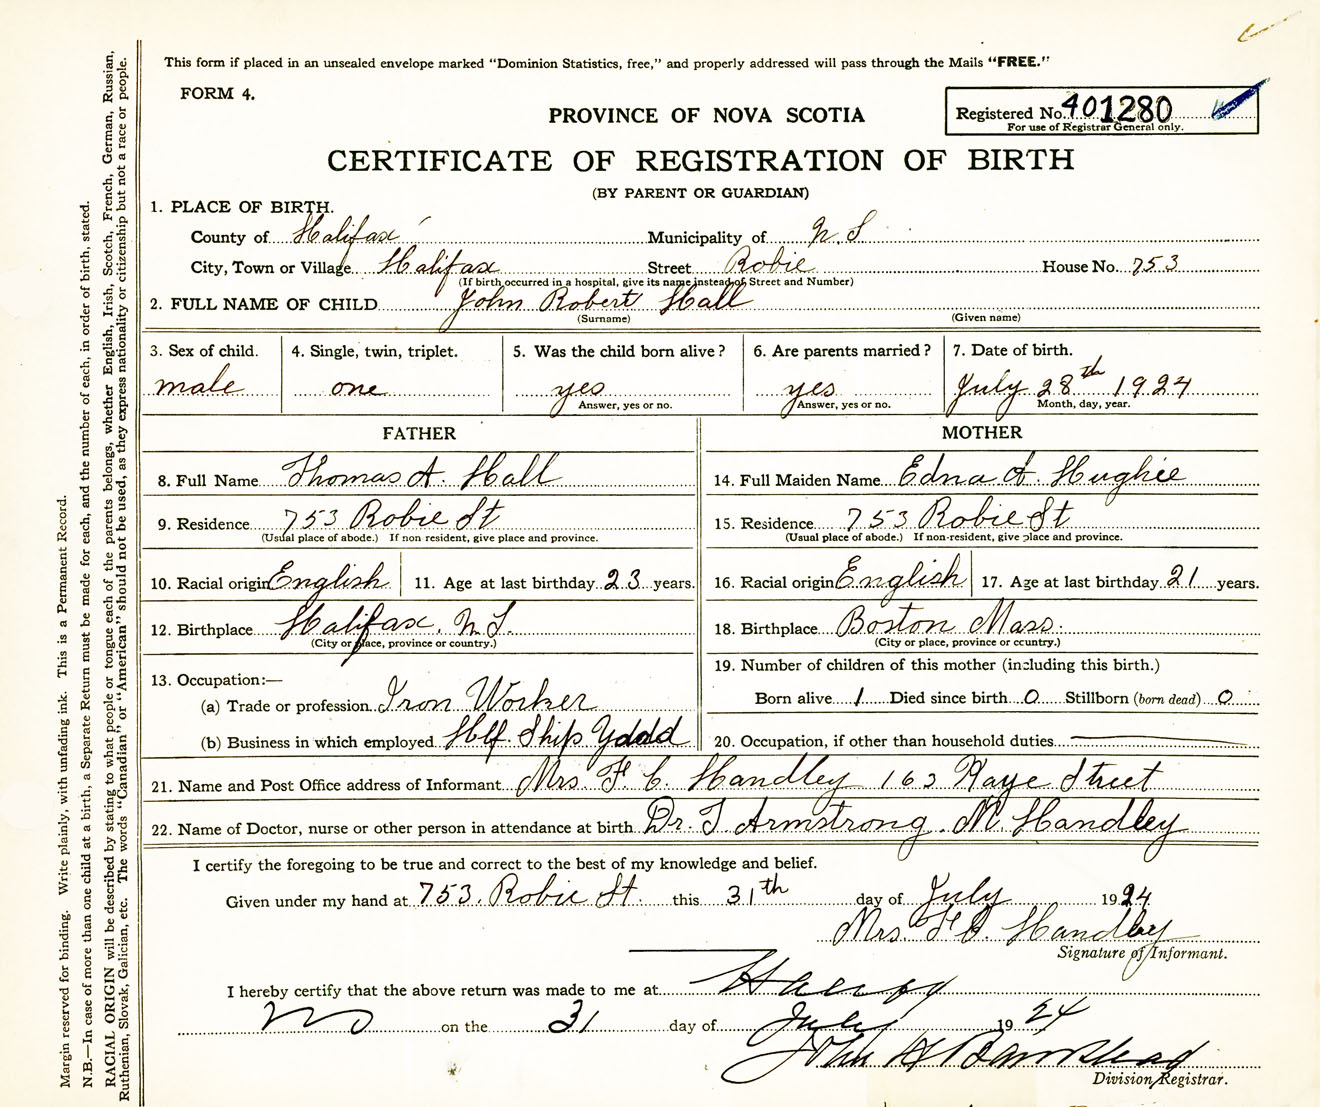 This form if placed in an unsealed envelope marked "Dominion Statistics, free," and properly addressed will pass through the Mails "FREE."
FORM 4.
PROVINCE OF NOVA SCOTIA
Registered No. 401280
For use of Registrar General only.
CERTIFICATE OF REGISTRATION OF BIRTH
(BY PARENT OR GUARDIAN)
1. PLACE OF BIRTH.
County of Halifax Municipality of N. S
City, Town or Village Halifax Street Robie House No. 753
(If birth occurred in a hospital, give its name instead of Street and Number)
2. FULL NAME OF CHILD John Robert Hall
(Surname) (Given name)
3. Sex of child. 4. Single, twin, triplet. 5. Was the child born alive? 6. Are parents married? 7. Date of birth.
male one yes yes July 28th 1924
Answer, yes or no. Answer, yes or no. Month, day, year.
FATHER MOTHER
8. Full Name Thomas A. Hall 14. Full Maiden Name Edna A. Hughie
9. Residence 753 Robie St 15. Residence 753 Robie St
(Usual place of abode.) If non resident, give place and province. (Usual place of abode.) If non-resident, give place and province.
10. Racial origin English 11. Age at last birthday 23 years. 16. Racial origin English 17. Age at last birthday 21 years.
12. Birthplace Halifax. N.S. 18. Birthplace Boston Mass.
(City or place, province or country.) (City or place, province or country.)
13. Occupation:— 19. Number of children of this mother (including this birth.)
(a) Trade or profession Iron Worker Born alive 1 Died since birth 0 Stillborn (born dead) 0
(b) Business in which employed Hlf. Ship Ydd 20. Occupation, if other than household duties
21. Name and Post Office address of Informant Mrs. F. C. Handley 163 Kaye Street
22. Name of Doctor, nurse or other person in attendance at birth Dr. T. Armstrong. M. Handley
I certify the foregoing to be true and correct to the best of my knowledge and belief.
Given under my hand at 753. Robie St. this 31th day of July 1924
Mrs. F. C. Handley
Signature of Informant.
I hereby certify that the above return was made to me at Halifax
NS on the 31 day of July 1924
John H Barnstead
Division Registrar.
Margin reserved for binding. Write plainly, with unfading ink. This is a Permanent Record.
N.B.—In case of more than one child at a birth, a Separate Return must be made for each, and the number of each, in order of birth, stated.
RACIAL ORIGIN will be described by stating to what people or tongue each of the parents belongs, whether English, Irish, Scotch, French, German, Russian,
Ruthenian, Slovak, Galician, etc. The words "Canadian" or "American" should not be used, as they express nationality or citizenship but not a race or people.